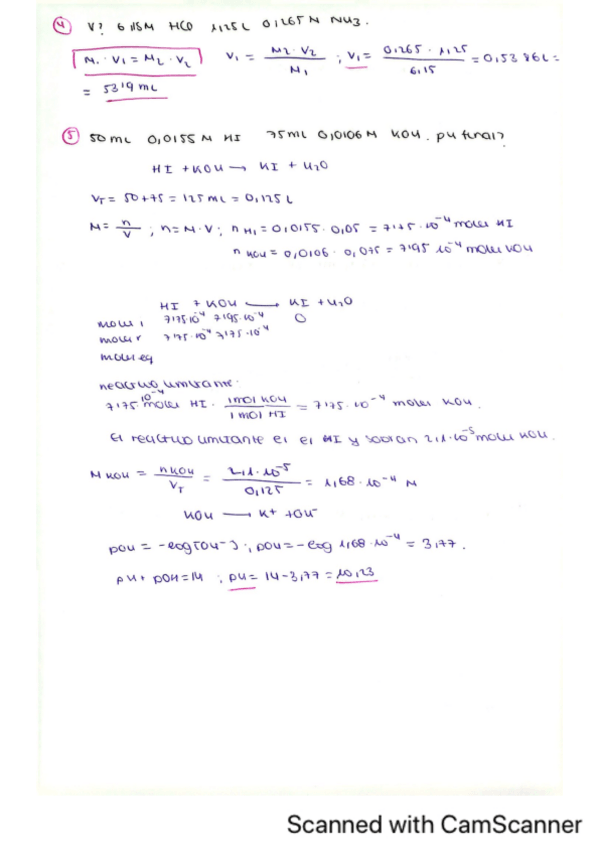 ④ V? 6,15M HCl 1,25L 0,265M NH3.
M1 · V1 = M2 · V2 V1 = M2 · V2 / M1 ; V1 = 0,265 · 1,25 / 6,15 = 0,5386L =
= 53,9 mL
⑤ 50mL 0,0155M HI 75mL 0,0106M KOH. pH final?
HI + KOH → KI + H2O
VT = 50+75 = 125mL = 0,125L
M = n/V ; n = M·V ; n HI = 0,0155 · 0,05 = 7,75 · 10^-4 moles HI
n KOH = 0,0106 · 0,075 = 7,95 10^-4 moles KOH
HI + KOH → KI + H2O
moles i 7,75·10^-4 7,95·10^-4 0
moles r 7,75·10^-4 7,75·10^-4
moles eq
reactivo limitante.
7,75·10^-4 moles HI · 1mol KOH / 1mol HI = 7,75·10^-4 moles KOH.
El reactivo limitante es el HI y sobran 2,1·10^-5 moles KOH.
M KOH = n KOH / VT = 2,1·10^-5 / 0,125 = 1,68·10^-4 M
KOH → K+ + OH-
pOH = -log[OH-] ; pOH = -log 1,68·10^-4 = 3,77.
pH + pOH = 14 ; pH = 14 - 3,77 = 10,23
Scanned with CamScanner